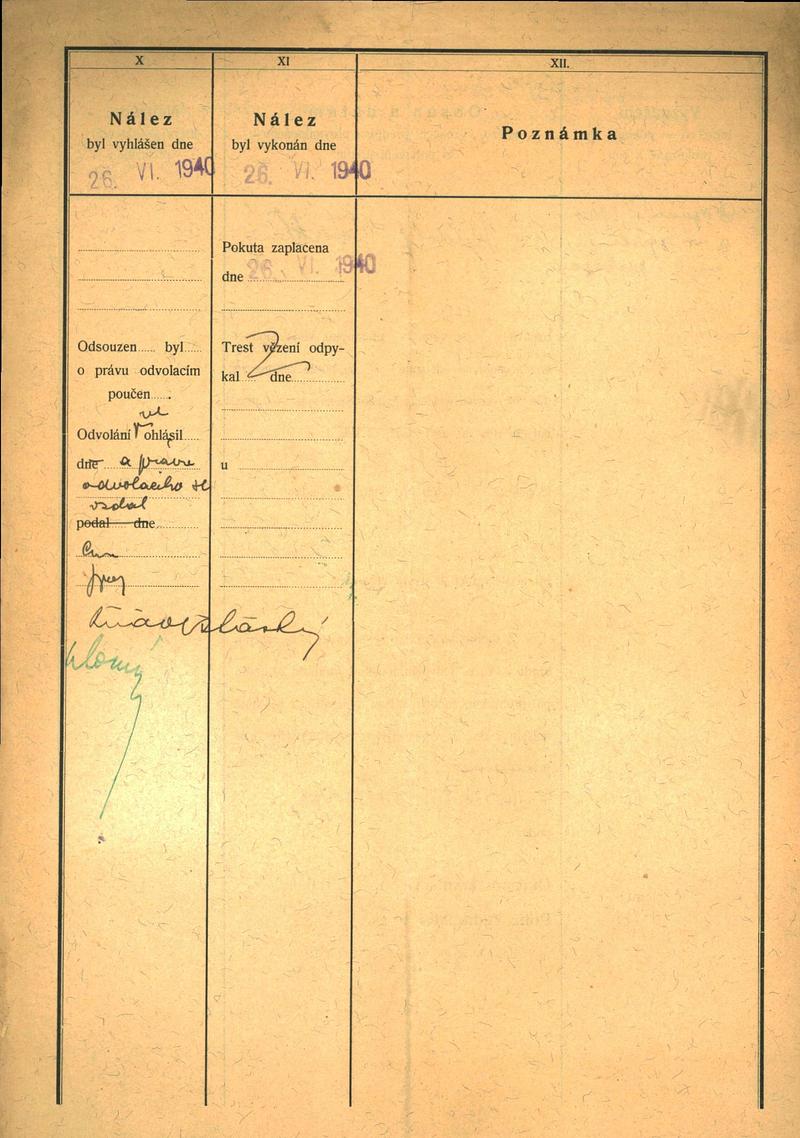 X
Nález
byl vyhlášen dne
26. VI. 1940
Odsouzen...... byl......
o právu odvolacím
poučen.......
ne
Odvolání ohlásil.....
dne a práva
odvolacího se
vzdal
podal dne
XI
Nález
byl vykonán dne
26. VI. 1940
Pokuta zaplacena
dne 26. VI. 1940
Trest vězení odpy-
kal ..... dne
u
XII.
Poznámka